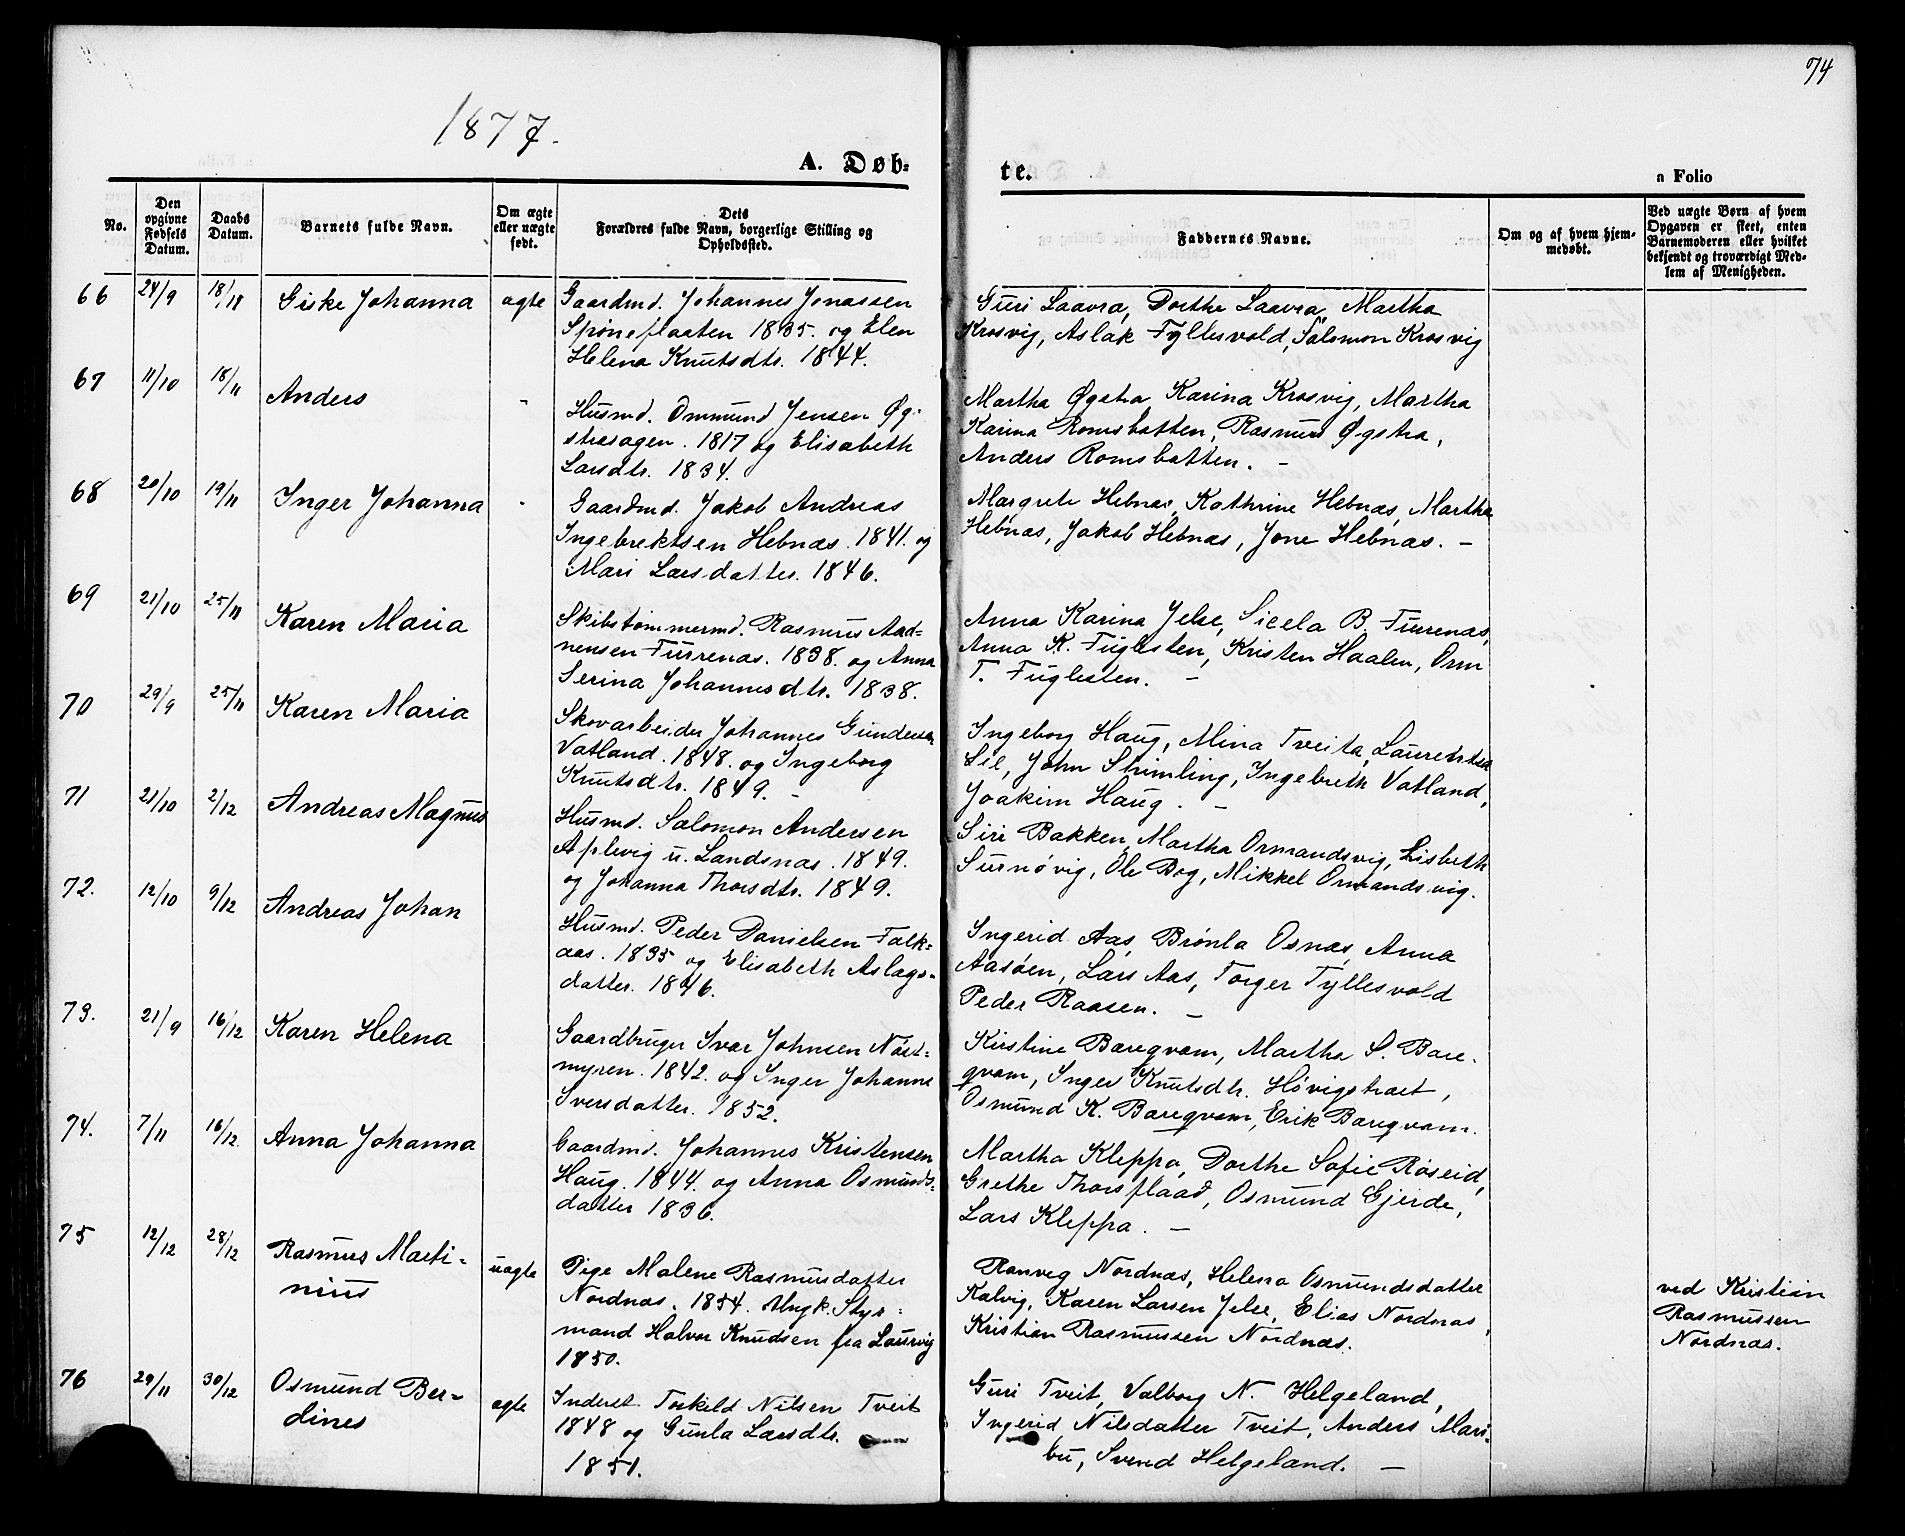 74
1877.
A. Døb-
te.
a Folio
No.
Den opgivne Fødsels Datum.
Daabs Datum.
Barnets fulde Navn.
Om ægte eller uægte født.
Dets Forældres fulde Navn, borgerlige Stilling og Opholdssted.
Faddernes Navne.
Om og af hvem hjem-
medøbt.
Ved uægte Børn af hvem
Opgaven er skeet, enten
Barnemoderen eller hvilket
bekjendt og troværdigt Med-
lem af Menigheden.
66 24/9 18/11 Giske Johanna ægte Gaardmd. Johannes Jonassen
Spøneflaaten 1835. og Elen
Helena Knutsdtr. 1844.
Guri Laavra, Dorthe Laavra, Martha
Krosvig, Aslak Tyllesvold, Salomon Krosvig
67 11/10 18/11 Anders -
Husmd. Ommund Jensen Øg-
strasagen. 1817 og Elisabeth
Larsdtr. 1834.
Martha Øgstra Karina Krosvig, Martha
Karina Romsbotten, Rasmus Øgstra,
Anders Romsbotten. -
68 20/10 19/11 Inger Johanna -
Gaardmd. Jakob Andreas
Ingebrektsen Hebnæs. 1841. og
Mari Larsdatter. 1846.
Margrete Hebnæs, Kathrine Hebnæs, Martha
Hebnæs, Jakob Hebnæs, Jone Hebnæs. -
69 21/10 25/11 Karen Maria
Skibstømmermd. Rasmus Aad-
nensen Furrenæs. 1838. og Anna
Serina Johannesdtr. 1838.
Anna Karina Jelse, Sicela B. Furrenæs,
Anna K. Fuglesten, Kristen Haalen, Orm
T. Fuglesten. -
70 29/9 25/11 Karen Maria
Skovarbeider Johannes Gundersen
Vatland. 1848. og Ingeborg
Knutsdtr. 1849. -
Ingeborg Haug, Mina Tveita, Laurentsa
Lie, John Skimling, Ingebreth Vatland,
Joakim Haug. -
71 21/10 2/12 Andreas Magnus
Husmd. Salomon Andersen
Aplevig u. Landsnæs. 1849.
og Johanna Thorsdtr. 1849.
Siri Bakken, Martha Ormandsvig, Lisbeth
Surnøvig, Ole Bog, Mikkel Ormandsvig.
72. 12/10 9/12 Andreas Johan
Husmd. Peder Danielsen Falk-
aas. 1835 og Elisabeth Aslags-
datter. 1846.
Ingerid Aas, Brønla Osnæs, Anna
Aasøen, Lars Aas, Torger Tyllesvold
Peder Raasen. -
73. 21/9 16/12 Karen Helena
Gaardbruger Ivar Johnsen Nøst-
myren. 1842. og Inger Johanne
Iversdatter. 1852.
Kirstine Bareqvam, Martha S. Bare-
qvam, Inger Knutsdtr. Høvigstraet,
Osmund K. Bareqvam, Erik Bareqvam.
74. 7/11 16/12 Anna Johanna
Gaardmd. Johannes Kristensen
Haug. 1844. og Anna Osmunds-
datter 1836.
Martha Kleppa, Dorthe Sofie Røseid,
Grethe Thorsflaad, Osmund Gjerde,
Lars Kleppa. -
75 12/12 28/12 Rasmus Marti-
nius
uægte Pige Malene Rasmusdatter
Nordnæs. 1854. Ungk. Styr-
mand Halvor Knudsen fra Laurvig
1850.
Ranveg Nordnæs, Helena Osmundsdatter
Kalvig, Karen Larsen Jelse, Elias Nordnæs,
Kristian Rasmussen Nordnæs.
ved Kristian
Rasmussen
Nordnæs.
76 29/11 30/12 Osmund Ber-
dines
ægte Inderst Torkeld Nilsen Tveit
1848 og Gunla Larsdtr.
1851.
Guri Tveit, Valborg N. Helgeland,
Ingerid Nilsdatter Tveit, Anders Mari-
bu, Svend Helgeland. -